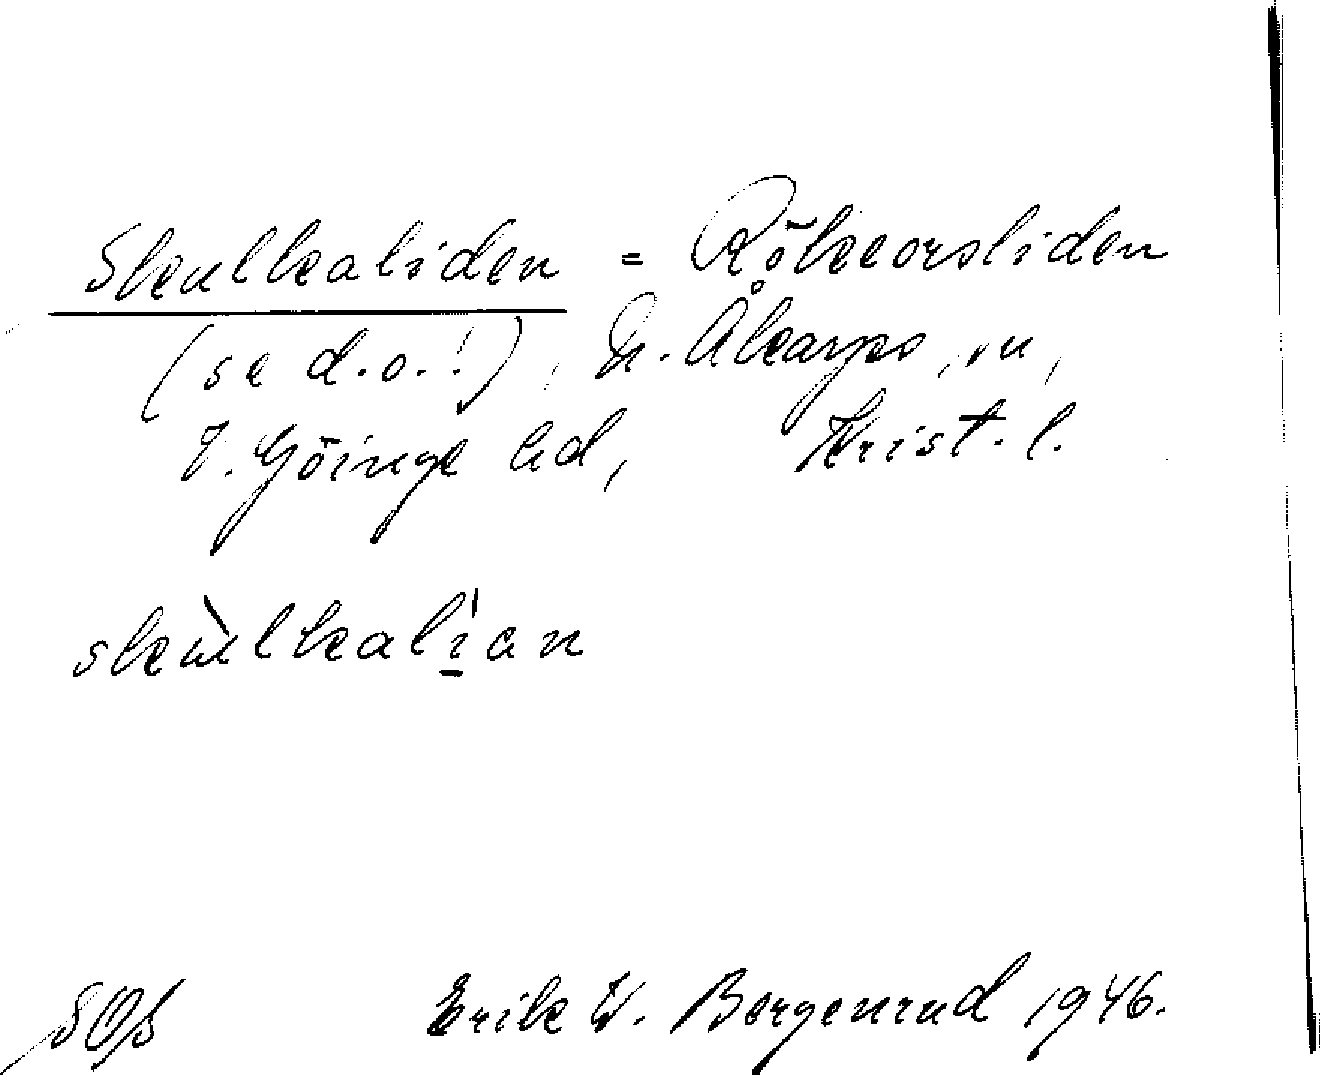 Skulkaliden = Rökkorsliden
(se d.o.!), N. Åkarps sn,
V. Göinge hd, Krist. l.
skùlkalían
Erik W. Borgenrud 1946.